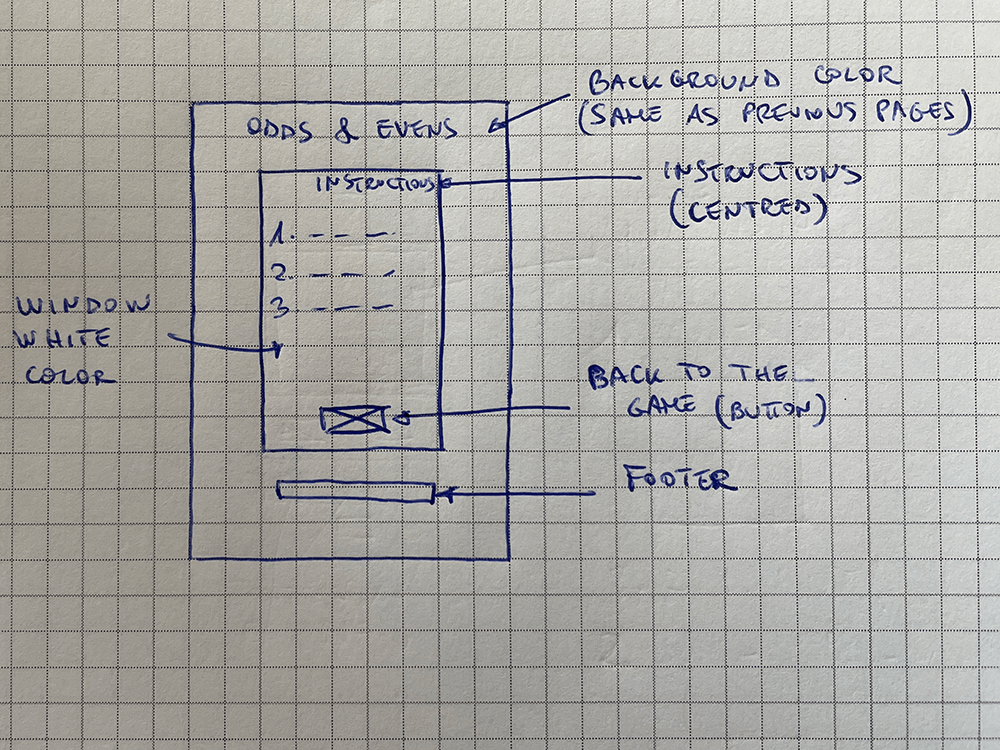 BACKGROUND COLOR
(SAME AS PREVIOUS PAGES)
ODDS & EVENS
INSTRUCTIONS
INSTRUCTIONS
(CENTRED)
1. - - - -
2. - - - -
3. - - - -
WINDOW
WHITE
COLOR
BACK TO THE
GAME (BUTTON)
FOOTER